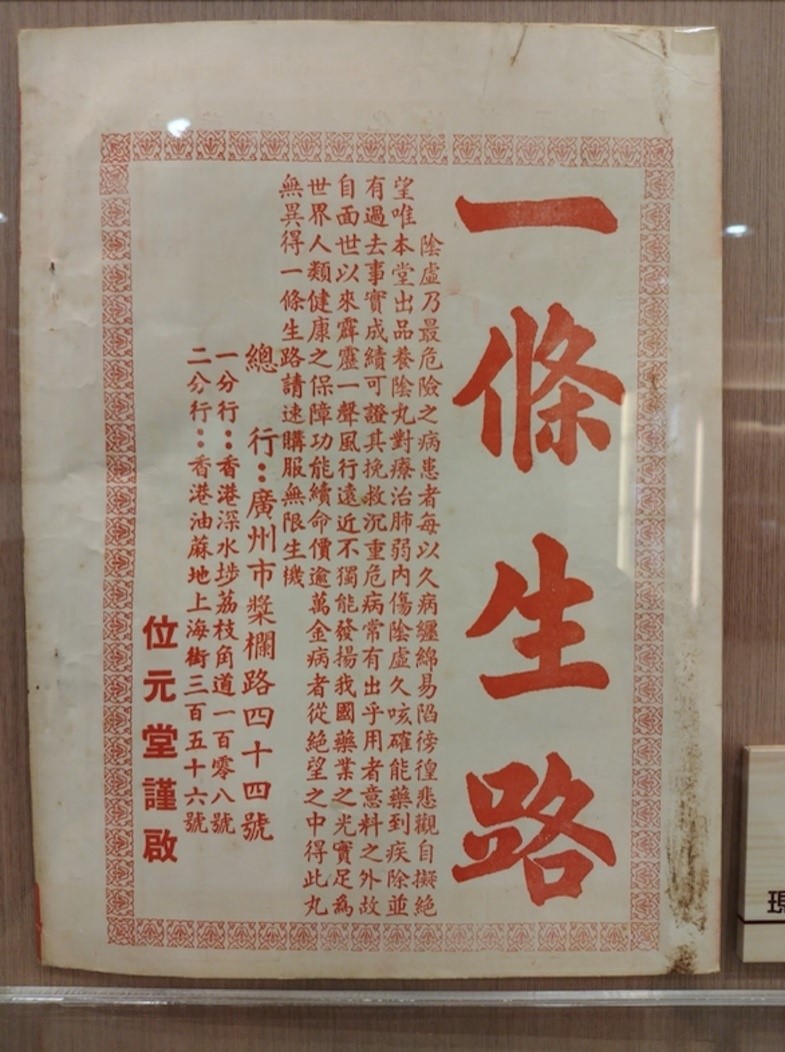 一條生路
陰虛乃最危險之病患者每以久病纏綿易陷徬徨悲觀自擬絕
望唯本堂出品養陰丸對療治肺弱內傷陰虛久咳確能藥到疾除並
有過去事實成績可證其挽救沉重危病常有出乎用者意料之外故
自面世以來霹靂一聲風行遠近不獨能發揚我國藥業之光實足為
世界人類健康之保障功能續命價逾萬金病者從絕望之中得此丸
無異得一條生路請速購服無限生機
總行：廣州市槳欄路四十四號
一分行：香港深水埗荔枝角道一百零八號
二分行：香港油蔴地上海街三百五十六號
位元堂謹啟